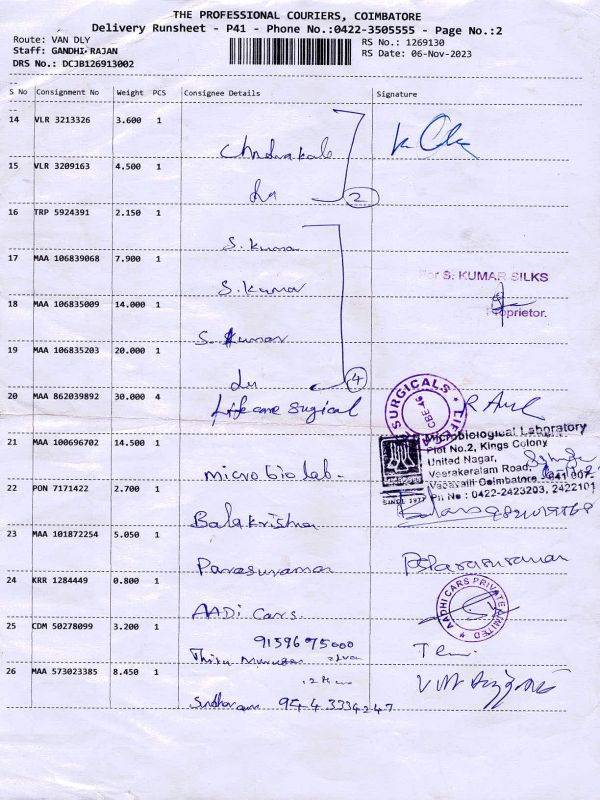 THE PROFESSIONAL COURIERS, COIMBATORE
Delivery Runsheet - P41 - Phone No.:0422-3505555 - Page No.:2
Route: VAN DLY
RS No.: 1269130
Staff: GANDHI RAJAN
RS Date: 06-Nov-2023
DRS No.: DCJB126913002
S No Consignment No Weight PCS Consignee Details Signature
14 VLR 3213326 3.600 1
15 VLR 3209163 4.500 1
2
16 TRP 5924391 2.150 1
S. Kumar
17 MAA 106839068 7.900 1
S. Kumar
For S. KUMAR SILKS
Proprietor.
18 MAA 106835009 14.000 1
S. Kumar
19 MAA 106835203 20.000 1
4
20 MAA 862039892 30.000 4
Life care Surgical
SURGICALS
21 MAA 100696702 14.500 1
micro bio lab.
Microbiological Laboratory
Plot No.2, Kings Colony
United Nagar,
Veerakeralam Road,
Vadavalli Coimbatore - 641 007
Ph No : 0422-2423203, 2422101
SINCE 1977
22 PON 7171422 2.700 1
Balakrishna
23 MAA 101872254 5.050 1
Parasuraman
24 KRR 1284449 0.800 1
AADi Cars.
AADHI CARS PRIVATE LIMITED
25 CDM 50278099 3.200 1
9159675000
Thiru Murugan
26 MAA 573023385 8.450 1